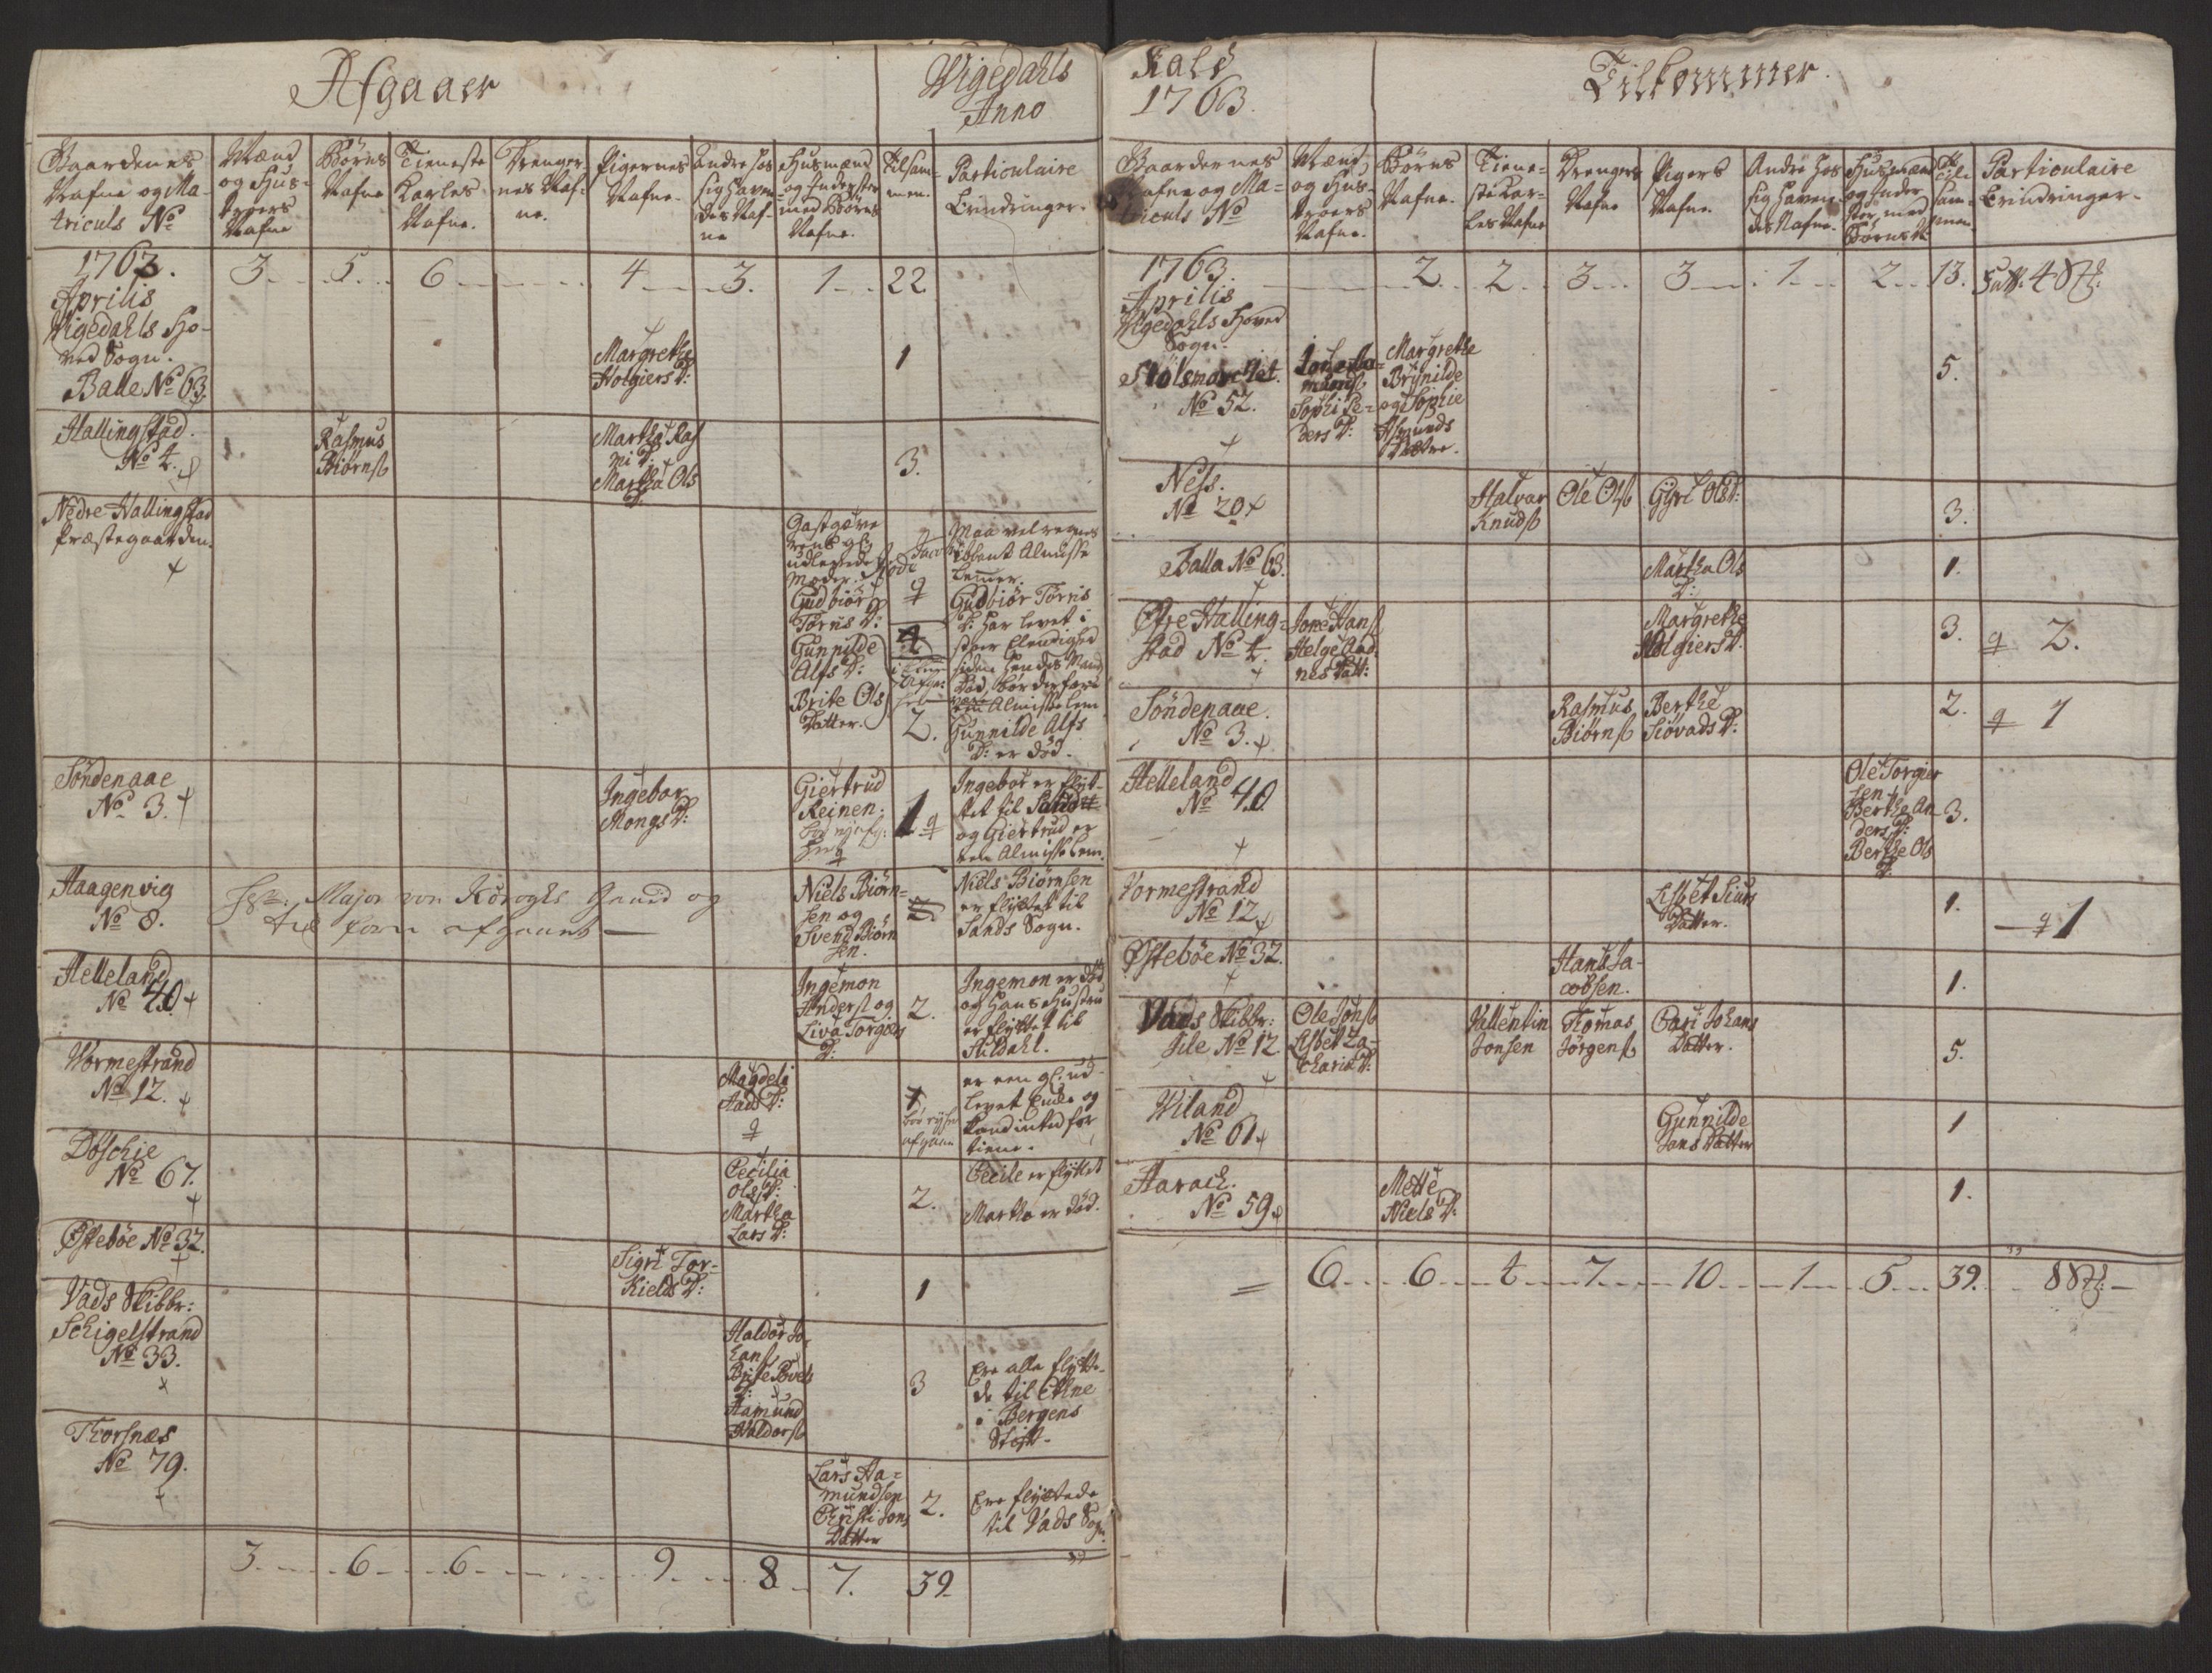 Afgaaer
Wigedahls
Anno
Gaardenes
Nafne og Ma-
triculs No
Mænd
og Hus-
troers
Nafne
Börns
Nafne
Tieneste
Karles
Nafne.
Drenger
nes Naf-
ne.
Pigernes
Nafne.
Andre hos
sig haven-
des Naf-
ne
Husmænd
og Inderster
med Börns
Nafne.
Tilsam-
men.
Particulaire
Erindringer.
1763.
Aprilis
Vigedahls Ho-
ved Sogn.
3 5 6 4 3. 1 22
Balle No 63.
Margrethe
Holgiers D:
1
Hallingstad
No 4.
Rasmus
Biörns
Martha Ras
mi D:
Martha Ols
D:
3.
Nedre Hallingstad
Præstegaarden.
Gastgeve
Gudbiör
Torris D:
Gunnilde
Alfs D:
Brite Ols
Datter.
2.
Maa vel regnes
iblant Almisse
Lemmer.
Gudbiör Torris
D: har levet i
stoer Elendighed
siden hendes Mand
Död, bör derfore
Almisselem
Gunnilde Alfs
D: er död.
Söndenaae
No 3.
Ingebor
Mongs D:
Giertrud
Reinen:
1
Ingebor er flyt-
tet til Sand
og Giertrud er
een Almisse Lem.
Haagenvig
No 8.
Major von Krogh
Niels Biörn-
sen og
Svend Biörn
sen.
Niels Biörnsen
er flyttet til
Sands Sogn.
Helleland
No 40
Ingemon
Anders og
Liva Torgiers
D:
2.
Ingemon er död
og hans Hustrue
er flyttet til
Aildahl.
Vormestrand
No 12.
Magdela
Aads D:
er een gl: ud-
levet Enke og
kand intet for
tiene.
Döschie
No 67.
Cecilia
Ols D:
Martha
Lars D:
2.
Cecile er flyttet
Martha er död.
Östeböe No 32.
Sigri Tor-
kields D:
1
Vads Skibbr:
Schigelstrand
No 33.
Haldor Jo
hans
Brite Povels
D:
Aamund
Haldors
3
Ere alle flytte-
de til Etne
i Bergens
Stift.
Thorsnæs
No 79.
Lars Aa-
mundsen
Christi Jons
Datter
2.
Ere flyttede
til Vads Sogn.
3 6 6 9 8 7. 39
Kald
1763.
Tilkommer.
Gaardernes
Nafne og Ma-
triculs No
Mænd
og Hus-
troers
Nafne.
Börns
Nafne.
Tiene-
ste Kar-
les Nafne
Drengers
Nafne
Pigers
Nafne.
Andre hos
sig haven-
des Nafne.
Husmænd
og Inder
ster med
Börns N
Til-
sam-
men.
Particulaire
Erindringer.
1763.
Aprilis
Vigedahls Hoved
Sogn.
2. 2 3 3 1 2 13. 48
Stölsmarchet.
No 52.
Sophi Pe-
ders D:
Margrethe
Brynilde
og Sophie
Asmunds
Dötre.
5.
Ness.
No 20
Halvar
Knuds
Ole Ols
Gyri Ols D:
3.
Balla No 63.
Martha Ols
D:
1.
Öfre Halling-
stad No 4.
Jone Hans
Helge Aad
nes Datt:
Margrethe
Holgiers D.
3.
2.
Söndenaae.
No 3.
Rasmus
Biörns
Berthe
Siövads D:
2.
1
Helleland
No 40
Ole Torgier
sen
Berthe An
ders D:
Berthe Ols
D:
3.
Vormestrand
No 12
Lisbet Siurs
Datter.
1.
1
Östeböe No 32.
Hans Ja-
cobsen.
1.
Vads Skibbr:
Iile No 12
Ole Jons
Lisbet Za-
charia D:
Vallentin
Jonsen
Thomas
Jörgens
Pari Johans
Datter.
5.
Wiland
No 61
Gunnilde
Jans Datter
1
Aarach.
No 59
Mette
Niels D:
1.
6 6 4 7 10 1 5 39. 88